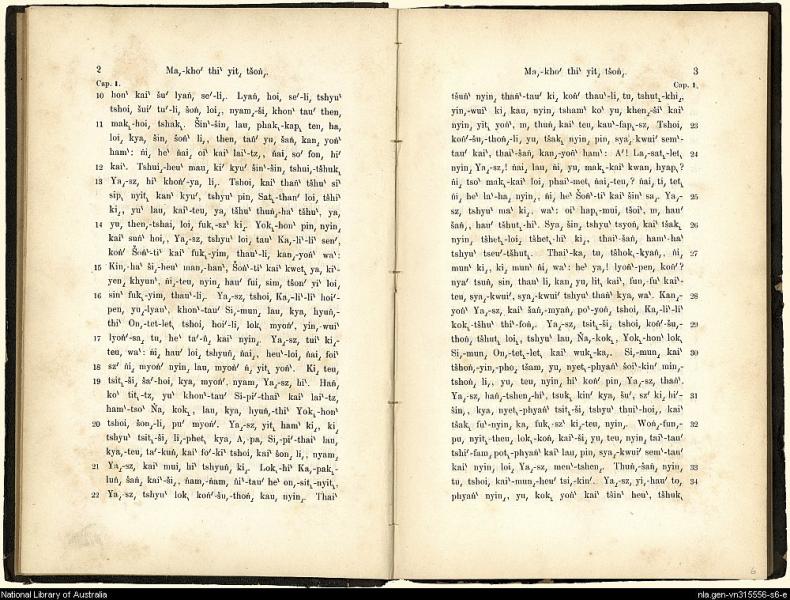 2 Ma͵-khoʹ thiˋ yit͵ tšoń͵.
Cap. 1.
10 honˋ kaiˋ šuʹ lyań, seʹ-li͵. Lyań, hoi, seʹ-li, tshyuˋ
tshoi, šuiʹ tuʹ-li, šoń, loi͵, nyam͵-ši, khonˋ tauʹ then,
11 mak͵-hoi, tshak͵. Šinˋ-šin, lau, phak͵-kap͵ ten, ha,
loi, kya, šin, šońˋ li͵, then, tańʹ yu, šań, kan͵ yońˋ
hamˋ: ńi͵ heˋ ńai, oi kai laiˋ-tz͵, ńai, soʹ fon, hiʹ
12 kaiˋ. Tshui͵-heuˋ mau, kiʹ kyuˋ šinˋ-šin, tshui͵-tšhuk͵
13 Ya͵-sz, hiˋ khońʹ-ya, li͵. Tshoi, kaiˋ thańˋ tšhuˋ siˋ
sip͵ nyit͵ kanˋ kyuˋ, tshyuˋ pin, Sat͵-thanˋ loi, tšhiˋ
ki͵, yuˋ lau, kaiˋ-teu, ya, tšhuˋ thuń͵-haˋ tšhuˋ, ya,
14 yu, then,-tshai, loi, fuk͵-szˋ ki͵. Yok͵-honˋ pin, nyin,
kaiˋ suńˋ hoi͵, Ya͵-sz, tshyuˋ loi, tauˋ Ka͵-liˋ-liˋ senʹ,
końˋ Šońˋ-tiˋ kaiˋ fuk͵-yim, thauˋ-li, kan͵-yońˋ waˋ:
15 Kin͵-haˋ ši͵-heuˋ man,-hanˋ, Šońˋ-tiˋ kaiˋ kwet͵ ya, kiˋ-
yen, khyunˋ, ńi͵-teu, nyin, hauʹ fui, sim, tšonʹ yiˋ loi,
16 sinˋ fuk͵-yim, thauˋ-li͵. Ya͵-sz, tshoi, Ka͵-liˋ-liˋ hoiʹ-
pen, yu͵-lyauˋ, khonˋ-tauʹ Si͵-mun, lau, kya, hyuń͵-
thiˋ On,-tet-let, tshoi, hoiʹ-li, lok͵ myońʹ, yin,-wuiˋ
17 lyońʹ-sa, tu, heˋ taʹ-ń, kaiˋ nyin. Ya͵-sz, tuiˋ ki͵-
teu, waˋ: ńi͵ hauʹ loi, tshyuń, ńai͵, heuˋ-loi, ńai, foiˋ
18 szˋ ńi͵ myońˋ nyin, lau, myońʹ ń, yit͵ yońˋ. Ki, teu,
19 tsit͵-ši, šaʹ-hoi, kya, myońʹ, nyam, Ya͵-sz, hiˋ. Hań,
koˋ tit͵-tz, yuˋ khonˋ-tauʹ Si-piʹ-thaiˋ kaiˋ lai-tz,
hamˋ-tsoˋ Ńa, kok͵, lau, kya, hyuń,-thiˋ Yok͵-honˋ
20 tshoi, šon͵-li, puʹ myońˋ. Ya͵-sz, yit͵ hamˋ ki͵, ki͵
tshyuˋ tsit͵-ši, li͵-phet͵ kya, A,-pa, Si͵-piʹ-thai lau,
kya,-teu, taʹ-kuń, kaiˋ foʹ-kiˋ tshoi, kaiˋ šon, li͵, nyam͵
21 Ya͵-sz, kaiˋ mui, hiˋ tshyuń, ki͵. Lok͵-hiˋ Ka͵-pak͵-
luń, šań, kaiˋ-ši͵, ńam,-ńam, ńiˋ-tauˋ heˋ on,-sit͵-nyit͵,
22 Ya͵-sz, tshyuˋ lok, końʹ-šu͵-thoń, kau, nyin͵. Thaiˋ
Ma͵-khoʹ thiˋ yit͵ tšoń͵. 3
Cap. 1.
tšuńˋ nyin, thańˋ-tauˋ ki͵ końʹ thauˋ-li, tu, tshut͵-khi͵,
yin,-wuiˋ ki, kau, nyin, tshamˋ koˋ yu, khen,-šiˋ kaiˋ
23 nyin, yit͵ yońˋ, m, thuń, kaiˋ teu, kauˋ-fap͵-sz, Tshoi,
końʹ-šu,-thoń,-li, yu, tšak͵ nyin, pin, sya͵-kwuiʹ semˋ-
24 tauʹ kaiˋ, thaiˋ-šań, kan,-yońˋ hamˋ: Aʹ! La͵-sat͵-let,
nyin, Ya͵-sz,! ńai, lau, ńi, yu, mak͵-kaiˋ kwan, hyap͵?
ńi͵ tsoˋ mak͵-kaiˋ loi, phaiˋ-met, ńai,-teu,? ńai͵ ti, tetˋ
25 ńi͵ heˋ laˋ-ha͵ nyin,, ńi͵ heˋ Šońˋ-tiˋ kaiˋ šinˋ sa͵. Ya͵-
sz, tshyuˋ maˋ ki͵, waˋ: oiˋ hap͵-mui, tšoiˋ, m, hauʹ
26 šań,, hauʹ tšhut͵-hiˋ. Sya͵ šin, tshyuˋ tsyoń, kaiˋ tšak͵
nyin, tšhet,-loi, tšhet,-hiˋ ki͵, thaiˋ-šań, hamˋ-haˋ
27 tshyuˋ tseuʹ-tšhutˋ. Thaiˋ-ka, tu, tšhok͵-kyań,, ńi͵
mun, ki͵, ki͵ munˋ ńi͵ waˋ: heˋ ya͵! lyońˋ-pen, końʹ?
nyaʹ tsuń, sin, thanˋ li, kan, yu, lit͵ kaiˋ, fun,-fuˋ kaiˋ-
28 teu, sya͵-kwuiʹ, sya͵-kwuiʹ tshyuˋ thańˋ kya, wa. Kan͵-
yońˋ Ya͵-sz, kaiˋ šań,-myań, poˋ-yoń, tshoi, Ka͵-liˋ-liˋ
29 kok, tšhuˋ thiˋ-foń,. Ya͵-sz, tsit͵-ši, tshoi, końʹ-šu,-
thoń, tšhut͵ loi,, tshyuˋ lau, Ńa,-kok͵, Yok͵-honˋ lok,
30 Si͵-mun, On,-tet͵-let, kaiˋ wuk͵-ka,. Si͵-mun, kaiˋ
tšhoń,-yin,-pho, tšam, yu, nyet͵-phyańˋ šoiˋ-kinʹ min,-
tshoń, li,, yu, teu, nyin, hiˋ końʹ pin, Ya͵-sz, thańˋ.
31 Ya͵-sz, hań͵-tshen͵-hiˋ, tsuk, kinˋ kya, šuʹ, szˋ ki͵ hiˋ-
šin,, kya, nyet,-phyańˋ tsit͵-ši, tshyuˋ thuiˋ-hoi,, kaiˋ
32 tšak͵ fuˋ-nyin, ka, fuk͵-szˋ ki͵-teu, nyin,. Woń͵-fun͵-
pu, nyit͵-theu, lok,-końˋ, kaiˋ-ši, yu, teu, nyin, taiˋ-tauˋ
tshiˋ-fam, pot͵-phyańˋ kaiˋ lau, pin, sya͵-kwuiʹ semˋ-tauˋ
33 kaiˋ nyin, loi, Ya͵-sz, menˋ-tshen͵. Thuń,-šań, nyin,
34 tu, tshoi, kaiˋ-mun,-heuʹ tsi͵-kinʹ. Ya͵-sz, yi,-hauʹ to,
phyańˋ nyin,, yu, kok, yońˋ kaiˋ tšinˋ heuˋ, tšhuk,
National Library of Australia
nla.gen-vn315556-s6-e